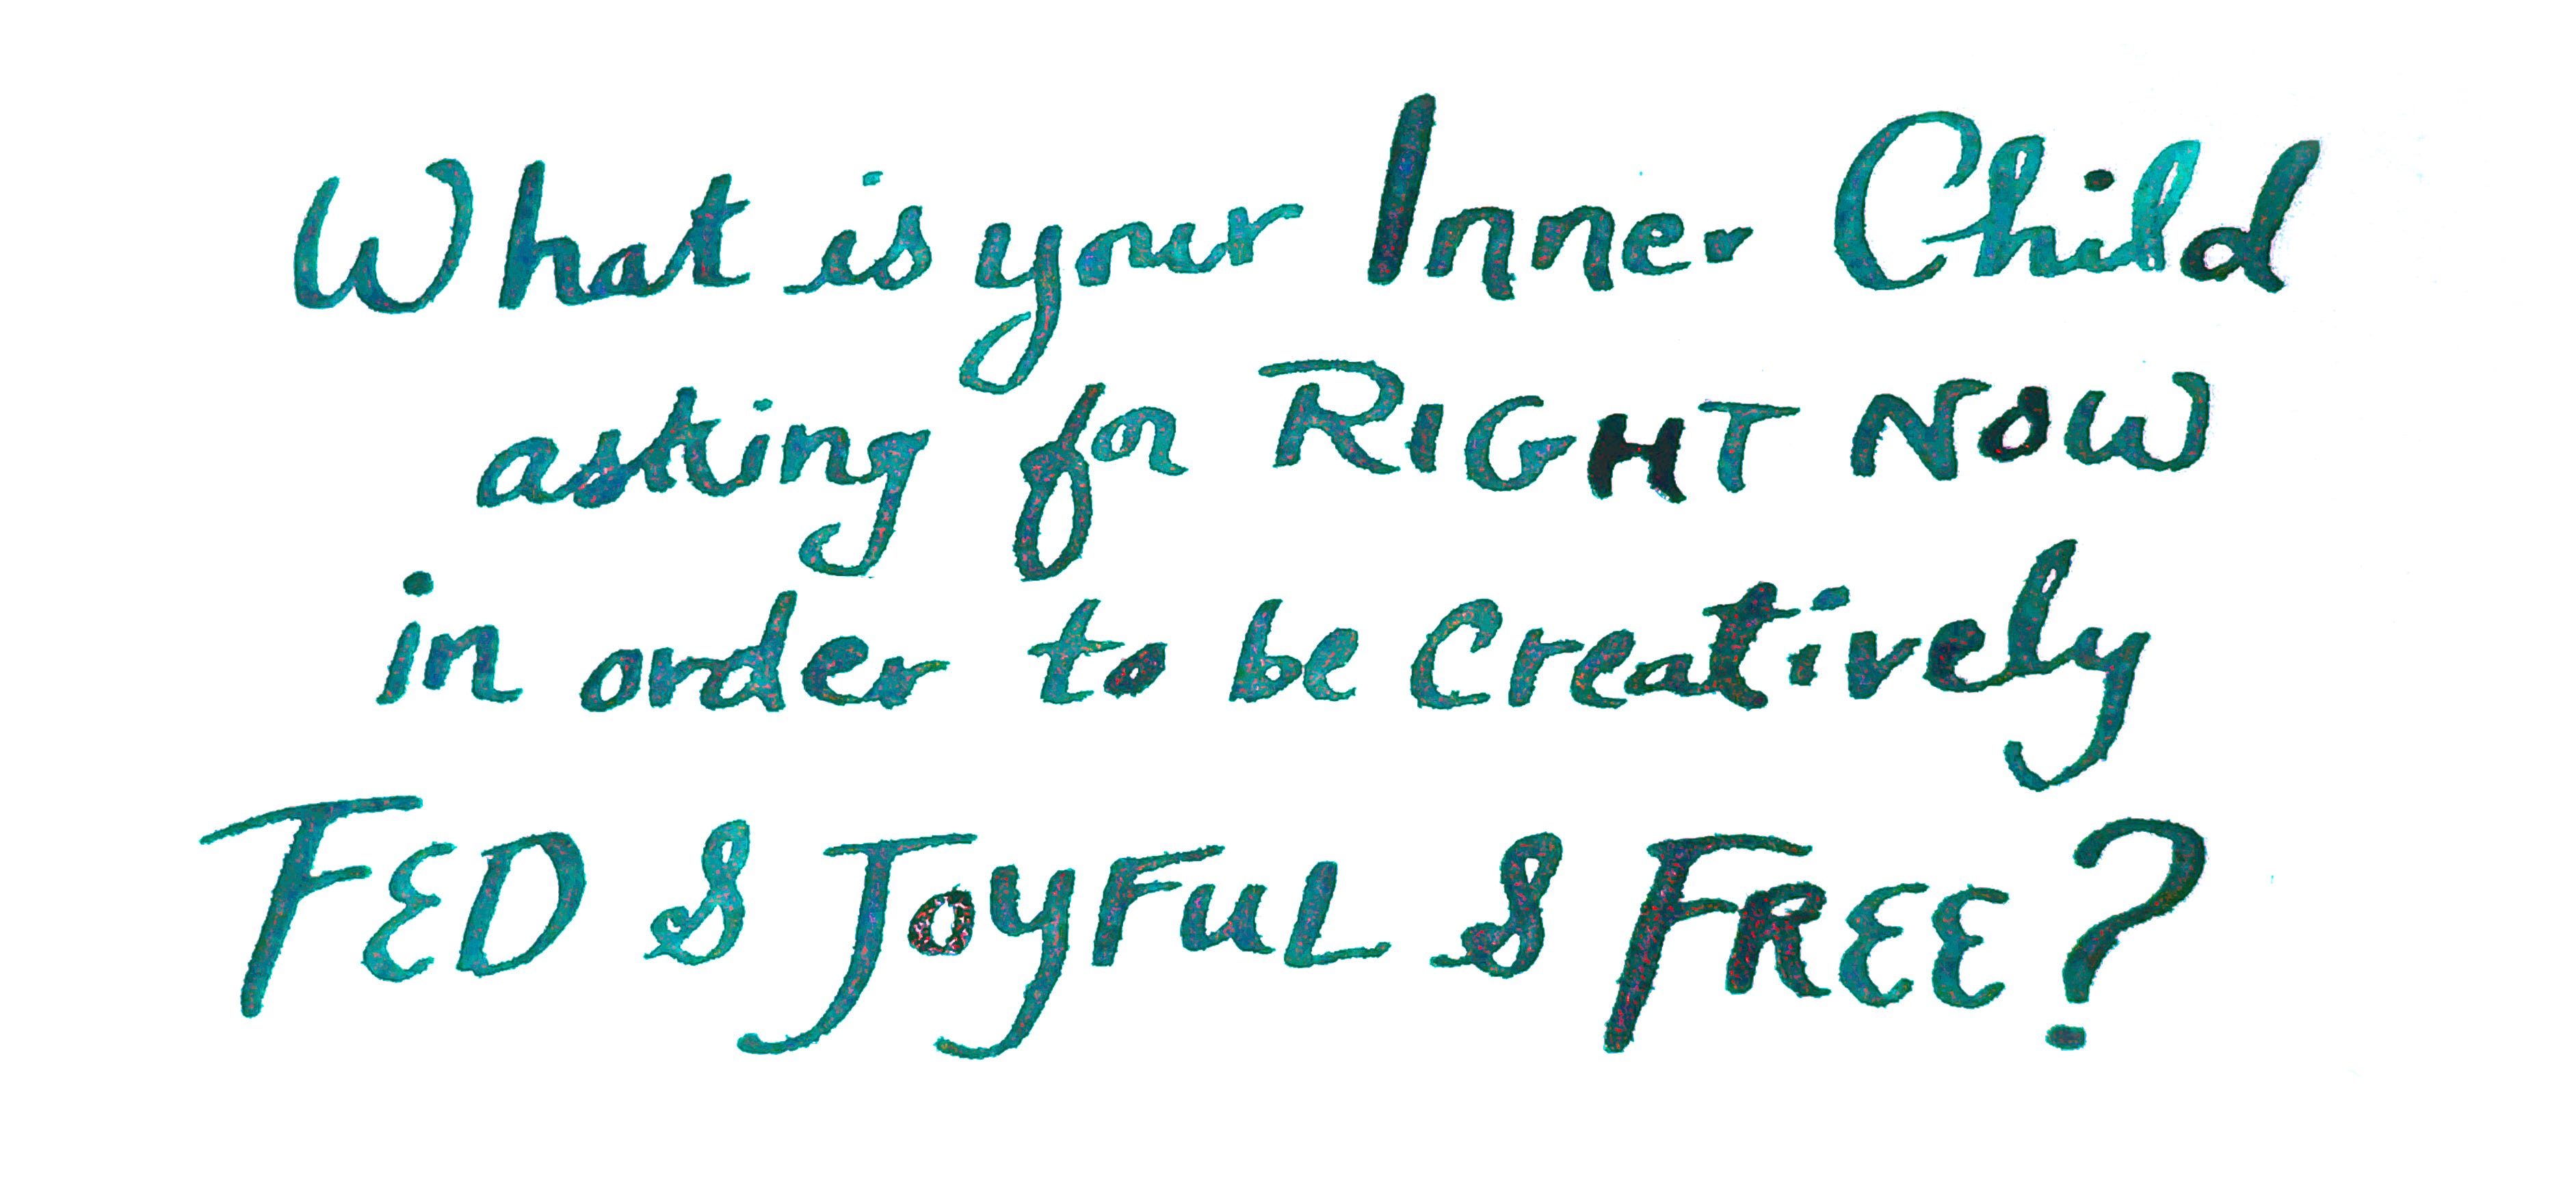 What is your Inner Child
asking for RIGHT NOW
in order to be Creatively
FED & JOYFUL & FREE?